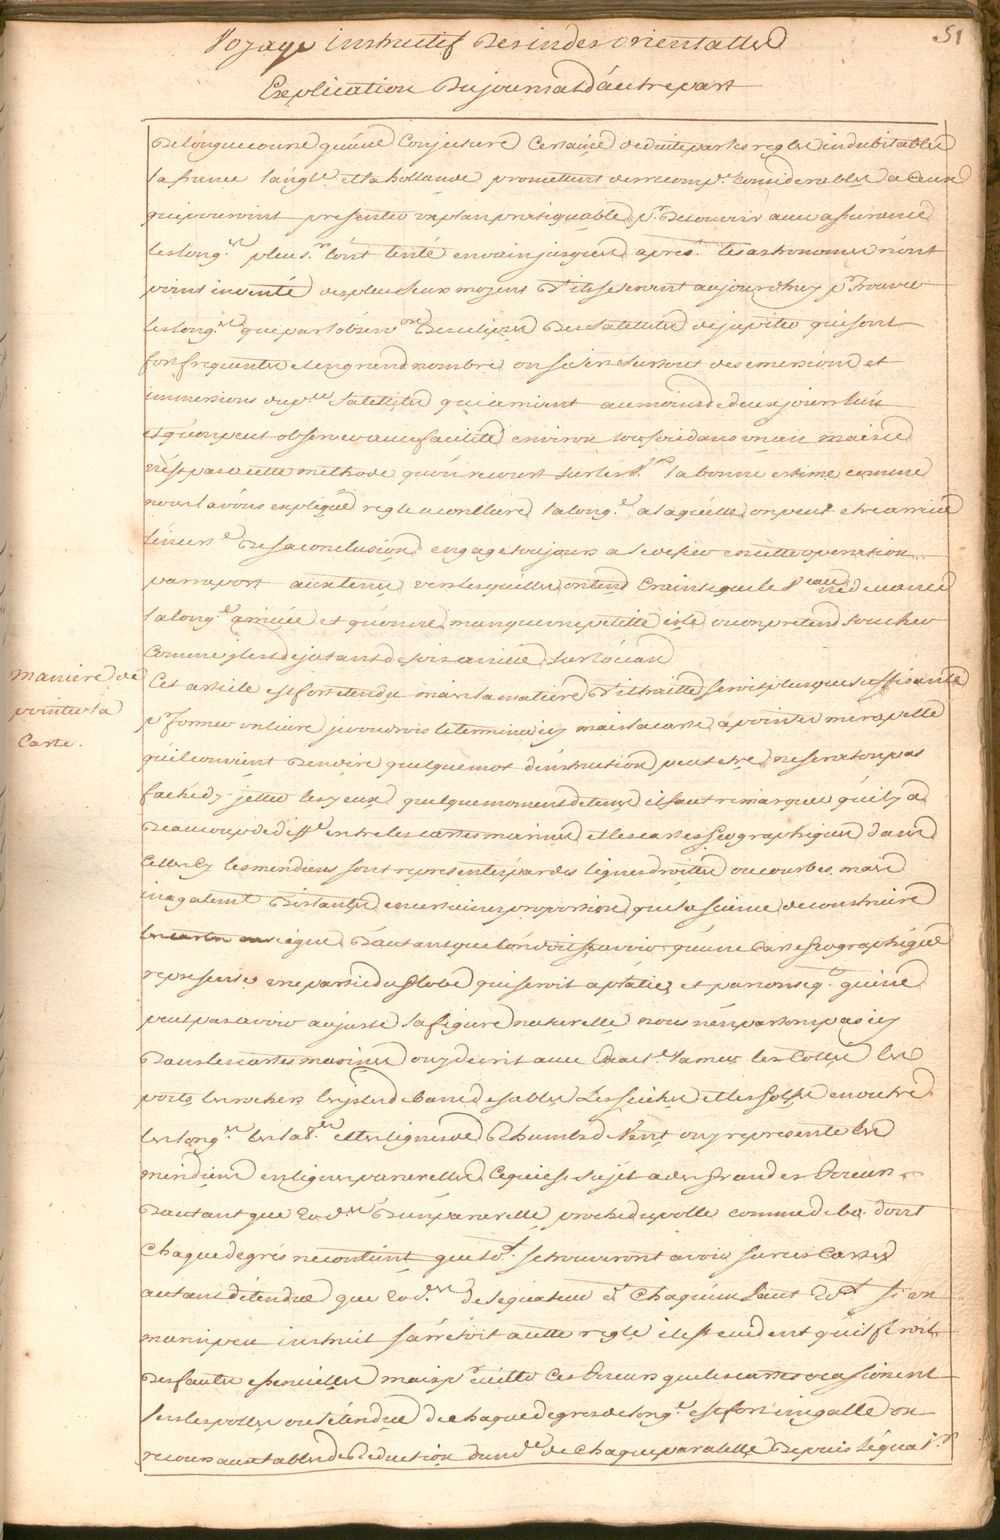 51
Voyage instructif Des indes orientalles
Explication Du journal d'autre part
De longue course qu'une Conjecture Certaine deduite par les regles indubitables
la france l'angl.e et la hollande promettent des recomp.e considerables a Ceux
qui pouroint presenter un plan pratiquable p.r Decouvrir avec assurance
les long.es plus.rs l'ont tenté en vain jusqu'icy apres les astronomes n'ont
point inventé de plus seux moyens D'ils se servent aujourdhuy p.r trouver
les long.es que par l'observ.on Des eclipses Des satellites de jupiter qui sont
fort frequentes et en grand nombre on se sert surtout des emersions et
immersions du p.er satellites qui arrivent au moins de deux jours l'un
et qu'on peut observer avec facilité environ fois dans un an mais ce
n'est pas a cette methode qu'on recourt sur les la bonne estime comme
nous l'avons expliqué regle a conclure la long.e a laquelle on peut etre arrivé
l'incert.e De sa conclusion engage toujours a se defier en cette operation
par raport aux terres vers lesquelles on tend Crainte que le v.eau ne devance
la long.e arrivée et qu'on ne manque une petitte isle ou on pretend toucher
Comme il est deja tant de fois arrivé sur l'ocean
Maniere de
pointer la
Carte.
Cet article est fort etendu mais la matiere D'il traitte seroit plus que suffisante
p.r former un livre je voudrois le terminer icy mais la carte a pointer me rapelle
qu'il convient D'en dire quelque mot d'instruction peut etre ne sera t on pas
faché d'y jetter les yeux quelque moment de tems il faut remarquer qu'il y a
Beaucoup de diff.e entre les cartes marines et les cartes Geographiques dans
Celles cy les meridiens sont representés par des lignes droittes ou courbes mais
inegalem.t Distantes en certaines proportions que la science de construire
enseigne D'autant que l'on doit sçavoir qu'une Carte Geographique
represente une partie du Globe qui seroit aplatie et par conseq.t qui ne
peut pas avoir au juste la figure naturelle nous n'en parlons pas icy
Dans les cartes marines on y decrit avec Exact.e la mer les Costes les
ports les rochers les isles de bancs de sables Les seiches et les Golfes en outre
les long.es les lat.es et les lignes de Rhumbs de Vent on y represente les
meridiens en lignes paralelles Ce qui est sujet a des Grandes Erreurs
D'autant que 20 d.és D'un paralelle proche du polle comme de 60. dont
Chaque degrés ne contient que 10.l se trouveront avoir sur ces Cartes
autant d'etendue que 20 d.és de l'equateur Chaqu'un vaut 20.l si un
marin peu instruit s'arretoit a cette regle il est evident qu'il feroit
Des fautes essencielles mais p.r eviter Ces Erreurs que les cartes ocasionent
vers les polles ou l'étendue de chaque degrés de long.e est fort inegalle on
recours aux tables de Reduction d'un d.é de Chaque paralelle Depuis l'equat.r